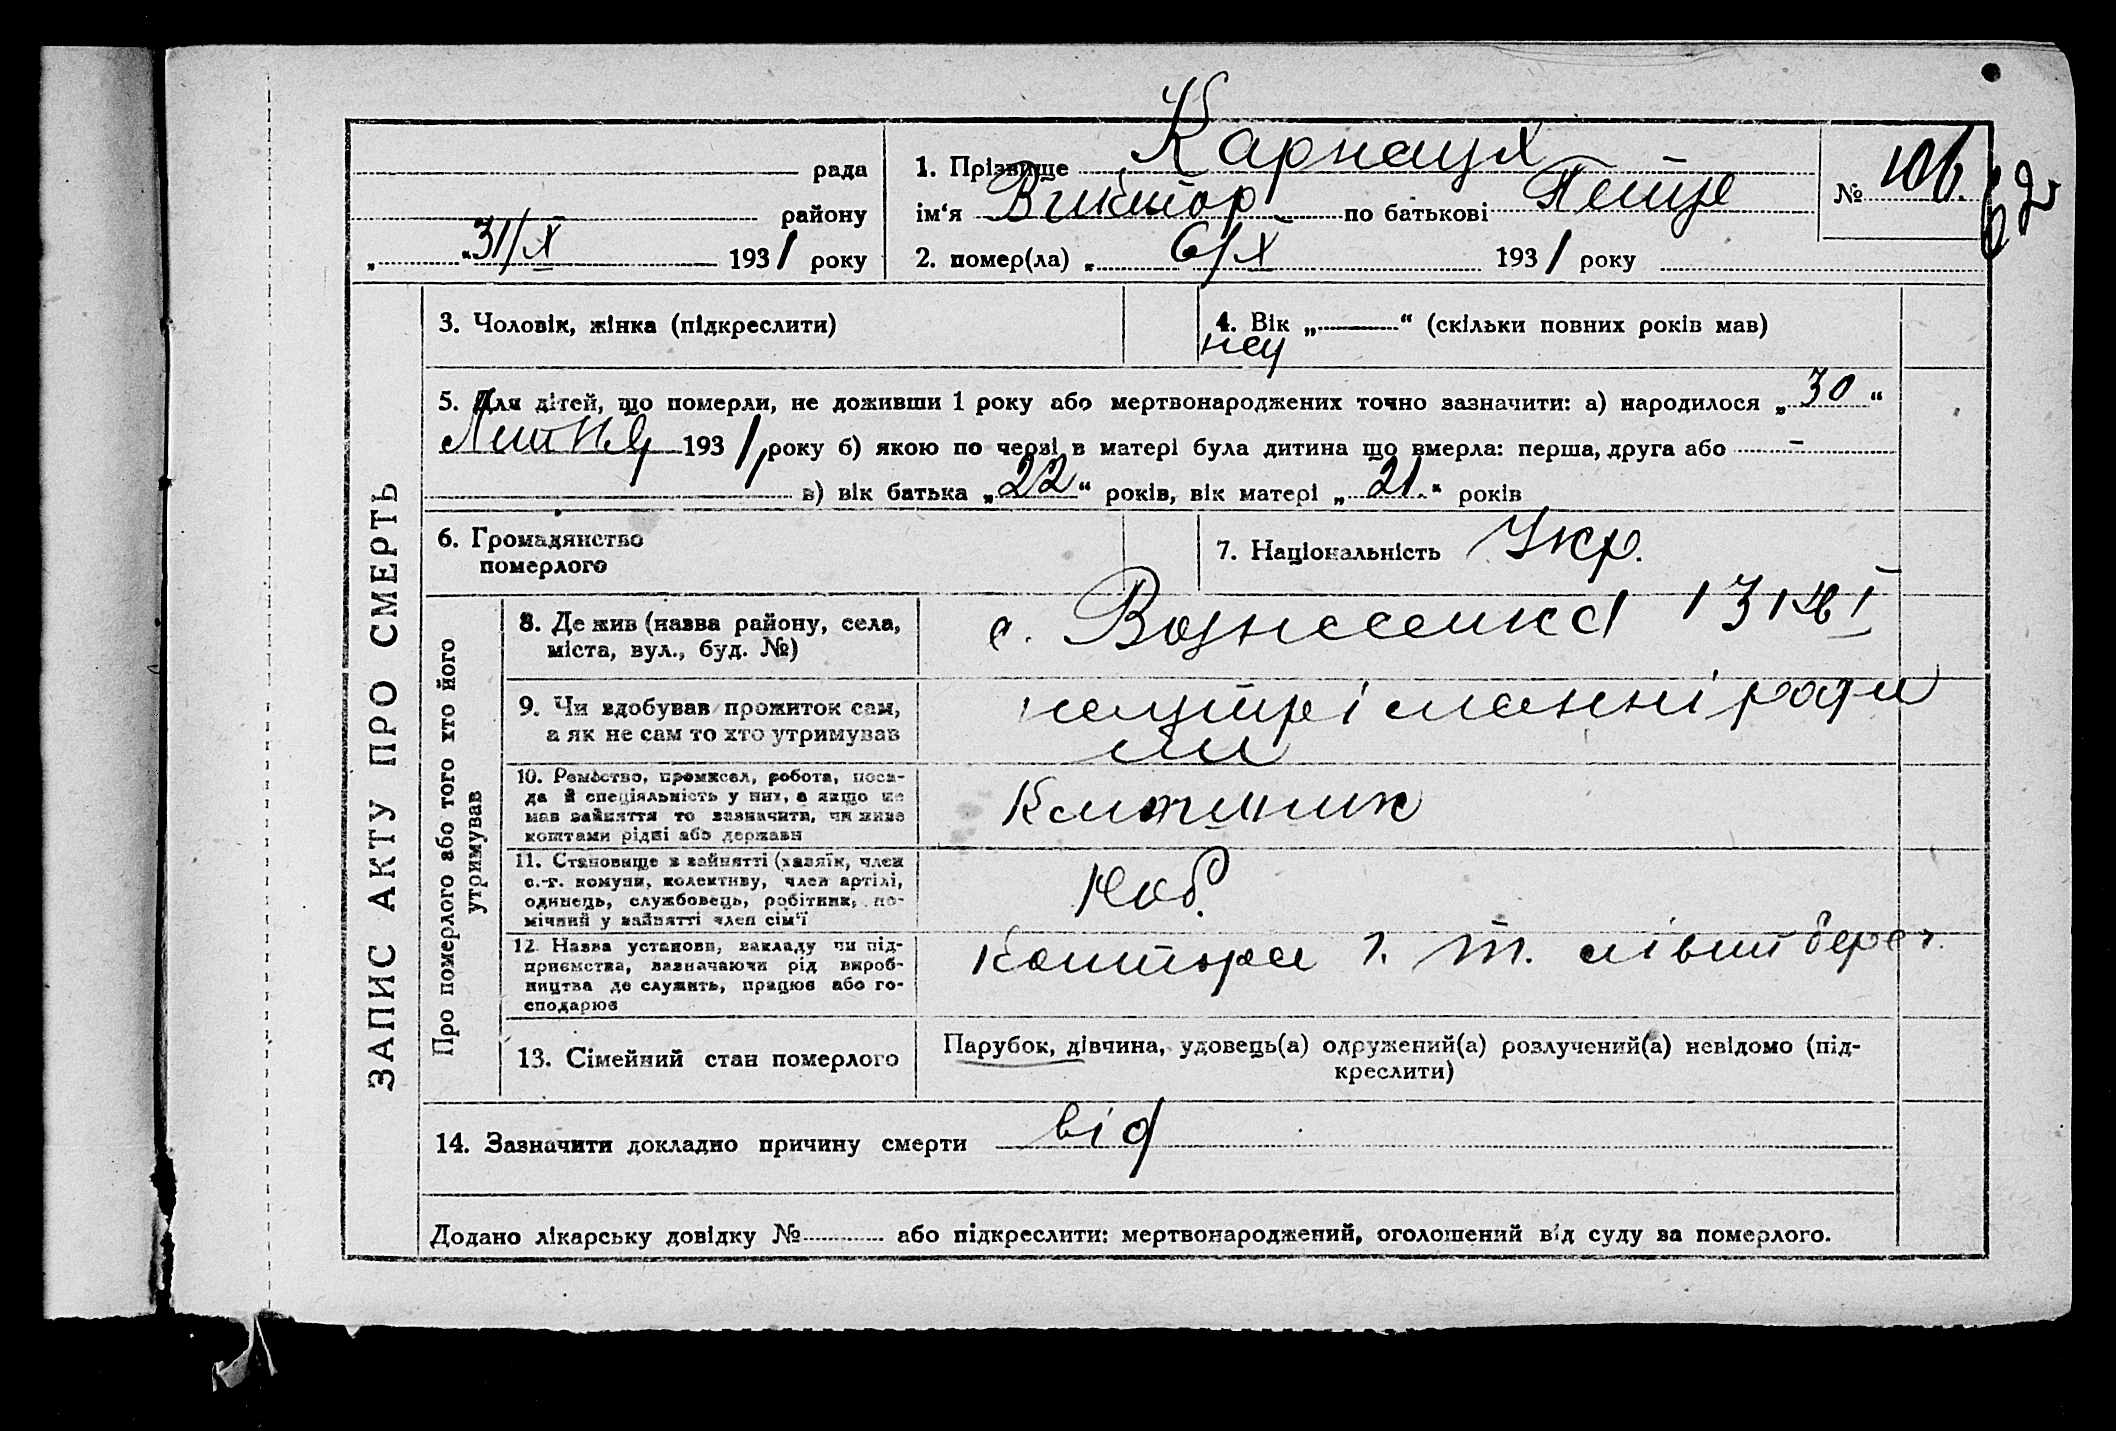 рада
району
„ “ 31/X 1931 року
1. Прізвище Карнаух
ім‘я Виктор по батькові Петре
2. помер(ла) „ 6/X 1931 року
№ 106
62
ЗАПИС АКТУ ПРО СМЕРТЬ
3. Чоловік, жінка (підкреслити)
4. Вік „ “ (скільки повних років мав)
5. Для дітей, що померли, не доживши 1 року або мертвонароджених точно зазначити: а) народилося „30“
Липня 1931 року б) якою по черзі в матері була дитина що вмерла: перша, друга або –
в) вік батька „22“ років, вік матері „21“ років
6. Громадянство
померлого
7. Національність Укр.
Про померлого або того хто його
утримував
8. Де жив (назва району, села,
міста, вул., буд. №)
с. Вознесенка
9. Чи здобував прожиток сам,
а як не сам то хто утримував
10. Ремество, промисел, робота, поса-
да й спеціяльність у них, а якщо не
мав зайняття то зазначити, чи живе
коштами рідні або держави
11. Становище в зайнятті (хазяїн, член
с.-г. комуни, колективу, член артілі,
одинець, службовець, робітник, по-
мічний у зайнятті член сім‘ї
Роб.
12. Назва установи, закладу чи під-
приємства, зазначаючи рід вироб-
ництва де служить, працює або го-
сподарює
Контора г. т. лівий берег.
13. Сімейний стан померлого
Парубок, дівчина, удовець(а) одружений(а) розлучений(а) невідомо (під-
креслити)
14. Зазначити докладно причину смерти від
Додано лікарську довідку № або підкреслити: мертвонароджений, оголошений від суду за померлого.